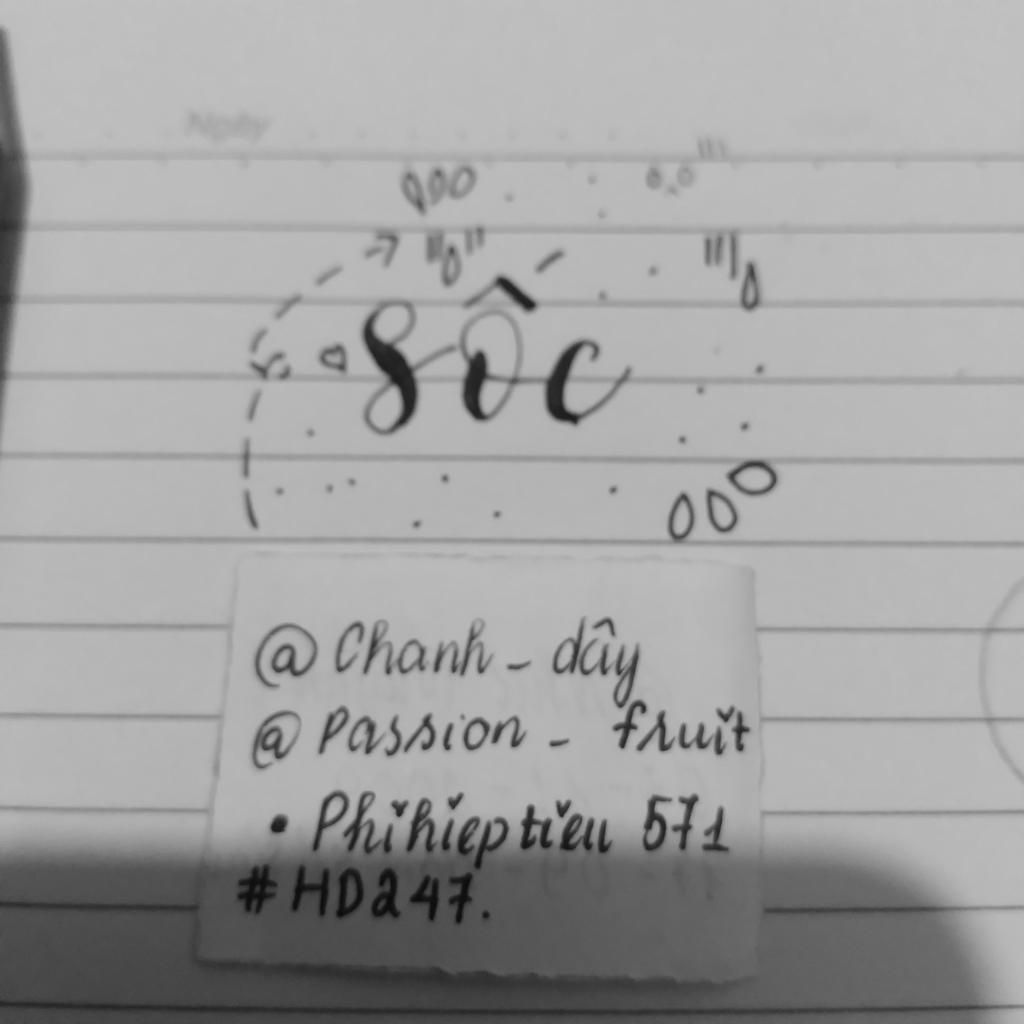 Ngày
sôc
@ Chanh - dây
@ Passion - fruit
• Phihieptieu 571
#HD247.